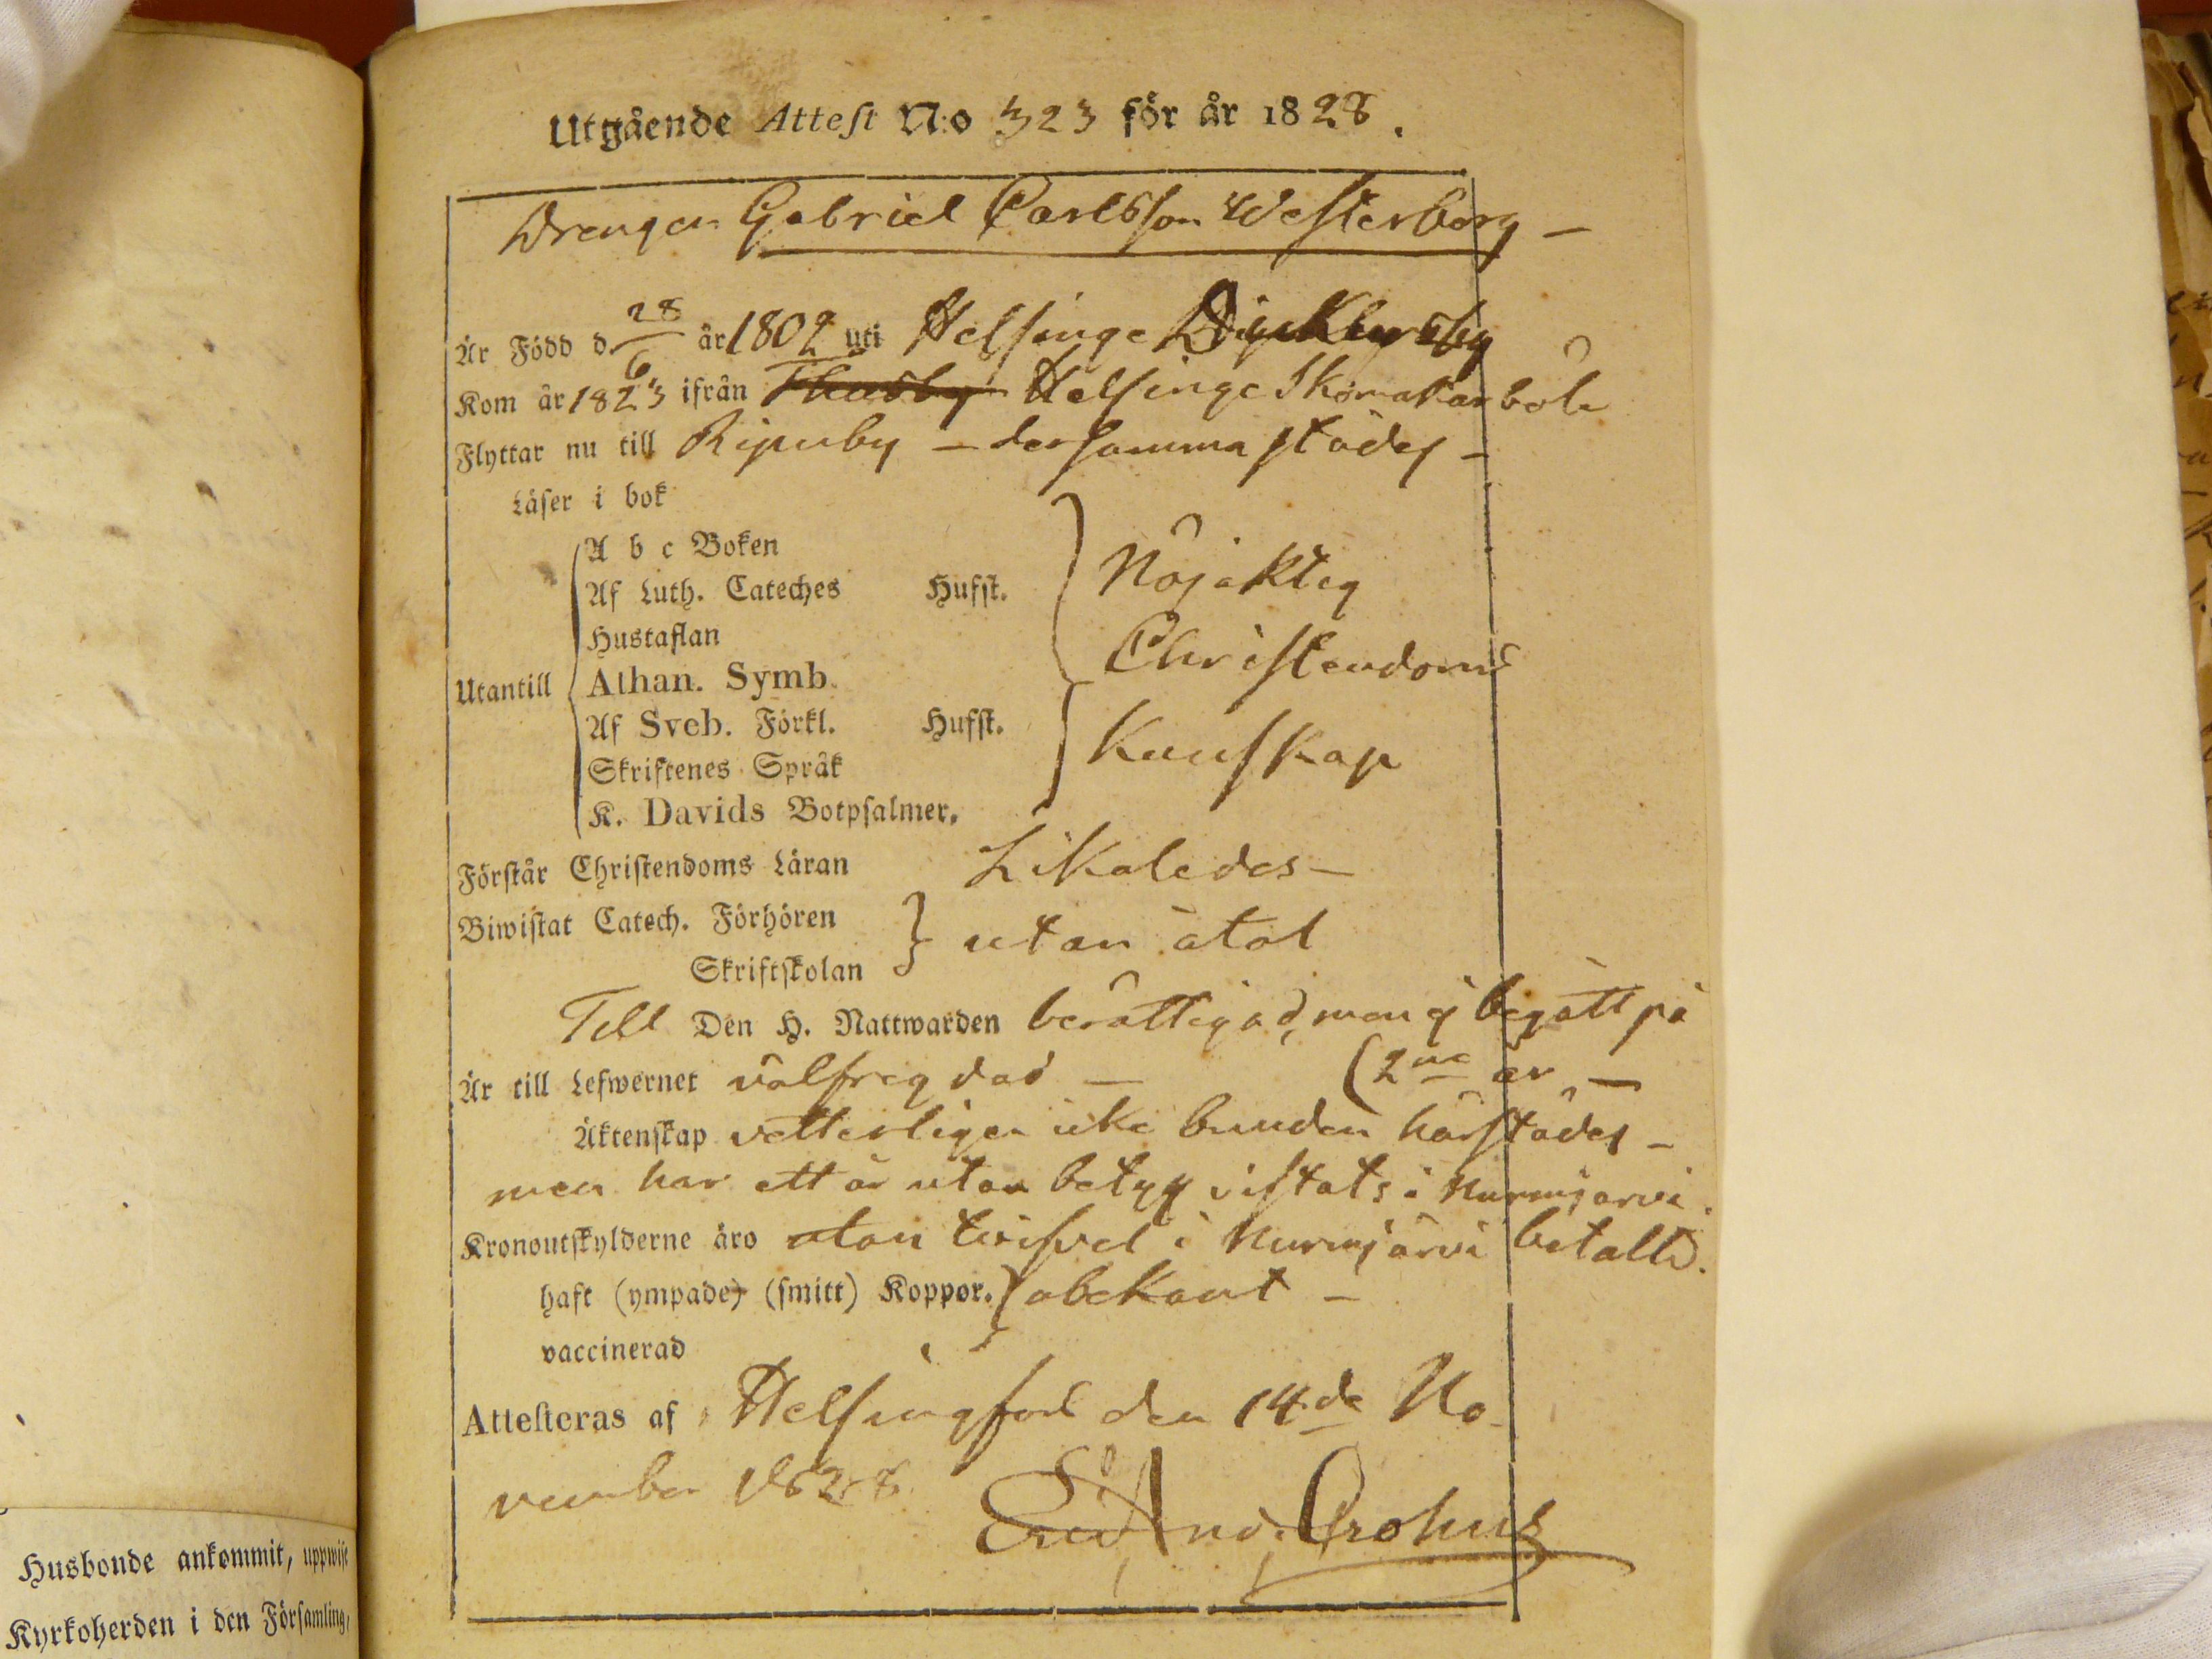 Utgående Attest N:o 323 för år 1828.
Drengen Gabriel Carlsson Westerborg —
Är Född d. 28/6 år 1802 uti Helsinge Dickursby
Kom år 1823 ifrån Thusby Helsinge Skomakarböle
Flyttar nu till Ripuby — dersammastädes —
Läser i bok
A b c Boken
Af Luth. Cateches Hufst.
Hustaflan
Utantill Athan. Symb.
Af Sveb. Förkl. Hufst.
Skriftenes Språk
K. Davids Botpsalmer.
Nöjaktig
Christendoms
Kunskap
Förstår Christendoms Läran Likaledes —
Biwistat Catech. Förhören
Skriftskolan
utan åtal
Till Den H. Nattwarden berättigad, men ej begått på
Är till Lefwernet välfregdad — (2ne år, —
Äktenskap vetterligen icke bunden härstädes —
men har ett år utan betyg vistats i Nurmijärvi.
Kronoutskylderne äro utan tvifvel i Nurmijärvi betalte.
haft (ympade) (smitt) Koppor. obekant —
vaccinerad
Attesteras af Helsingfors den 14de No-
vember 1828.
And. Crohns
Husbonde ankommit, uppwise
Kyrkoherden i den Församling,